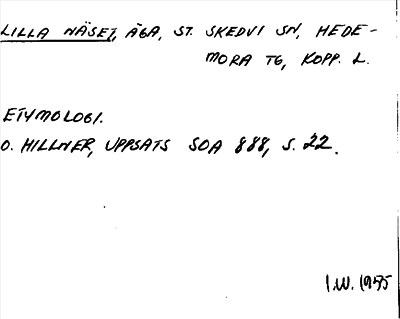 LILLA NÄSET, ÄGA, ST. SKEDVI SN, HEDE-
MORA TG, KOPP. L.
ETYMOLOGI.
O. HILLNER, UPPSATS SOA 888, S. 22.
I.W. 1975